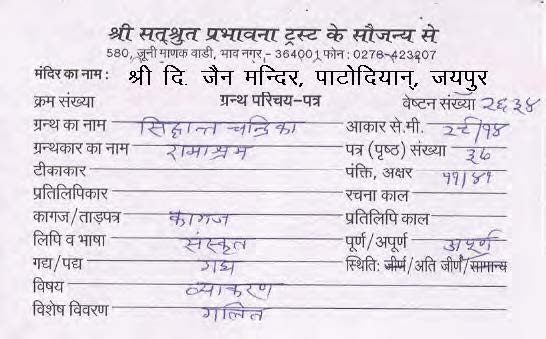 श्री सत्श्रुत प्रभावना ट्रस्ट के सौजन्य से
580, जूनी माणक वाडी, भाव नगर, - 364001 फोन : 0278-423207
मंदिर का नाम : श्री दि. जैन मन्दिर, पाटोदियान्, जयपुर
क्रम संख्या ग्रन्थ परिचय-पत्र वेष्टन संख्या २६३४
ग्रन्थ का नाम सिद्धान्त चन्द्रिका आकार से.मी. २८/१४
ग्रन्थकार का नाम रामाश्रम पत्र (पृष्ठ) संख्या ३७
टीकाकार पंक्ति, अक्षर ११/४१
प्रतिलिपिकार रचना काल
कागज/ताड़पत्र कागज प्रतिलिपि काल
लिपि व भाषा संस्कृत पूर्ण/अपूर्ण अपूर्ण
गद्य/पद्य गद्य स्थिति: जीर्ण/अति जीर्ण/सामान्य
विषय व्याकरण
विशेष विवरण गलित